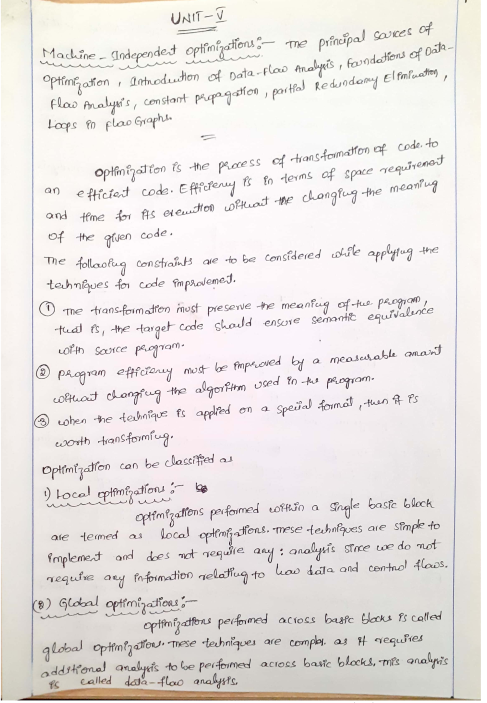 UNIT-V
Machine-Independent optimizations:- The principal sources of
optimization, Introduction of Data-Flow Analysis, foundations of Data-
Flow Analysis, constant propagation, partial Redundamy Elimination,
Loops in flow Graphs.
Optimization is the process of transformation of code to
an efficient code. Efficiency is in terms of space requirement
and time for its execution without the changing the meaning
of the given code.
The following constraints are to be considered while applying the
techniques for code improvement.
① The transformation must preserve the meaning of the program,
that is, the target code should ensure semantic equivalence
with source program.
② program efficiency must be improved by a measurable amount
without changing the algorithm used in the program.
③ when the technique is applied on a special format, then it is
worth transforming.
optimization can be classified as
1) Local optimizations:-
optimizations performed within a single basic block
are termed as local optimizations. These techniques are simple to
implement and does not require any: analysis since we do not
require any information relating to how data and control flows.
(2) Global optimizations:-
optimizations performed across basic blocks is called
global optimizations. These techniques are complex as it requires
additional analysis to be performed across basic blocks. this analysis
is called data-flow analysis.